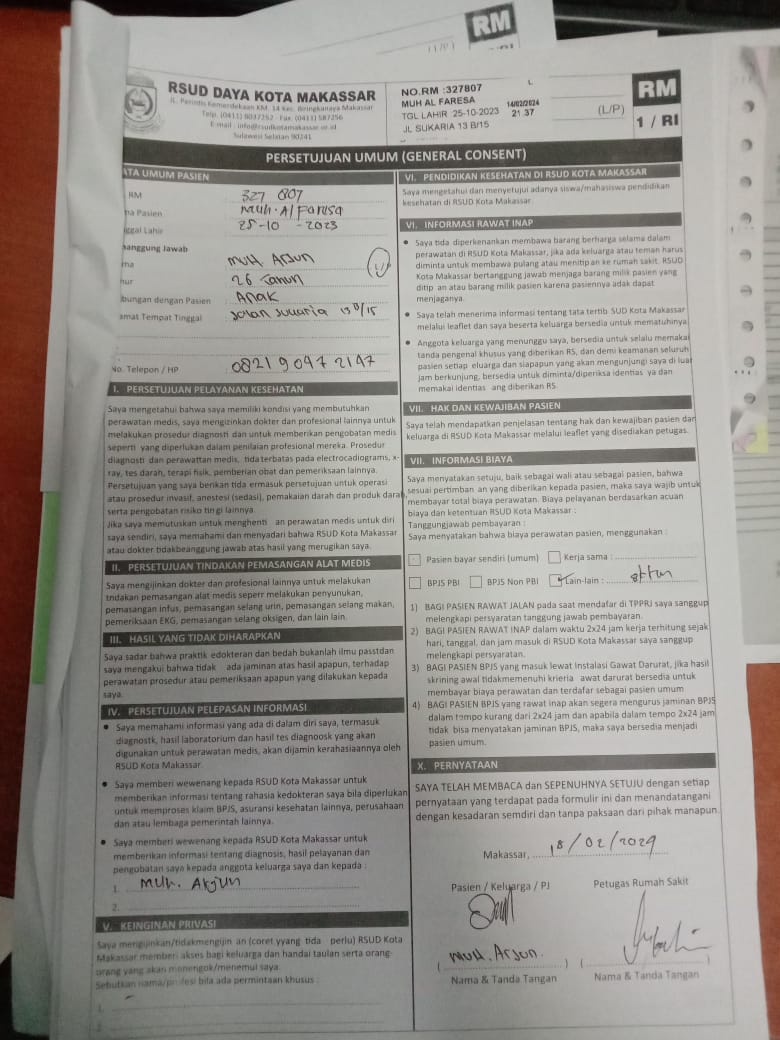 RM
RSUD DAYA KOTA MAKASSAR
JL. Perintis Kemerdekaan KM. 14 Kec. Biringkanaya Makassar
Telp. (0411) 9037252 Fax. (0411) 587256
E-mail : info@rsudkotamakassar.or.id
Sulawesi Selatan 90241
NO.RM :327807
MUH AL FARESA
TGL LAHIR 25-10-2023
JL SUKARIA 13 B/15
14/02/2024
21 37
(L/P)
RM
1 / RI
PERSETUJUAN UMUM (GENERAL CONSENT)
ATA UMUM PASIEN
RM 327 807
na Pasien Muh. Al Farisa
ggal Lahir 25-10-2023
nanggung Jawab
ma Muh Arjun
nur 26 Tahun
bungan dengan Pasien Anak
amat Tempat Tinggal Jalan Sukaria 13 B/15
No. Telepon / HP 0821 9097 2197
I. PERSETUJUAN PELAYANAN KESEHATAN
Saya mengetahui bahwa saya memiliki kondisi yang membutuhkan
perawatan medis, saya mengizinkan dokter dan profesional lainnya untuk
melakukan prosedur diagnosti dan untuk memberikan pengobatan medis
seperti yang diperlukan dalam penilaian profesional mereka. Prosedur
diagnosti dan perawattan medis, tida terbatas pada electrocadiograms, x-
ray, tes darah, terapi fisik, pemberian obat dan pemeriksaan lainnya.
Persetujuan yang saya berikan tida ermasuk persetujuan untuk operasi
atau prosedur invasif, anestesi (sedasi), pemakaian darah dan produk darah
serta pengobatan risiko tin gi lainnya.
Jika saya memutuskan untuk menghenti an perawatan medis untuk diri
saya sendiri, saya memahami dan menyadari bahwa RSUD Kota Makassar
atau dokter tidakbeanggung jawab atas hasil yang merugikan saya.
II. PERSETUJUAN TINDAKAN PEMASANGAN ALAT MEDIS
Saya mengijinkan dokter dan profesional lainnya untuk melakukan
tndakan pemasangan alat medis seperr melakukan penyunukan,
pemasangan infus, pemasangan selang urin, pemasangan selang makan,
pemeriksaan EKG, pemasangan selang oksigen, dan lain lain.
III. HASIL YANG TIDAK DIHARAPKAN
Saya sadar bahwa praktik edokteran dan bedah bukanlah ilmu passtdan
saya mengakui bahwa tidak ada jaminan atas hasil apapun, terhadap
perawatan prosedur atau pemeriksaan apapun yang dilakukan kepada
saya.
IV. PERSETUJUAN PELEPASAN INFORMASI
• Saya memahami informasi yang ada di dalam diri saya, termasuk
diagnostk, hasil laboratorium dan hasil tes diagnoosk yang akan
digunakan untuk perawatan medis, akan dijamin kerahasiaannya oleh
RSUD Kota Makassar.
• Saya memberi wewenang kepada RSUD Kota Makassar untuk
memberikan informasi tentang rahasia kedokteran saya bila diperlukan
untuk memproses klaim BPJS, asuransi kesehatan lainnya, perusahaan
dan atau lembaga pemerintah lainnya.
• Saya memberi wewenang kepada RSUD Kota Makassar untuk
memberikan informasi tentang diagnosis, hasil pelayanan dan
pengobatan saya kepada anggota keluarga saya dan kepada :
1. Muh. Arjun
2.
V. KEINGINAN PRIVASI
Saya mengijinkan/tidakmengijin an (coret yyang tida perlu) RSUD Kota
Makassar memberi akses bagi keluarga dan handai taulan serta orang-
orang yang akan menengok/menemui saya.
Sebutkan nama/profesi bila ada permintaan khusus :
1.
2.
VI. PENDIDIKAN KESEHATAN DI RSUD KOTA MAKASSAR
Saya mengetahui dan menyetujui adanya siswa/mahasiswa pendidikan
kesehatan di RSUD Kota Makassar.
VI. INFORMASI RAWAT INAP
• Saya tida diperkenankan membawa barang berharga selama dalam
perawatan di RSUD Kota Makassar, jika ada keluarga atau teman harus
diminta untuk membawa pulang atau menitipan ke rumah sakit. RSUD
Kota Makassar bertanggung jawab menjaga barang milik pasien yang
ditip an atau barang milik pasien karena pasiennya adak dapat
menjaganya.
• Saya telah menerima informasi tentang tata tertib SUD Kota Makassar
melalui leaflet dan saya beserta keluarga bersedia untuk mematuhinya.
• Anggota keluarga yang menunggu saya, bersedia untuk selalu memakai
tanda pengenal khusus yang diberikan RS, dan demi keamanan seluruh
pasien setiap eluarga dan siapapun yang akan mengunjungi saya di luar
jam berkunjung, bersedia untuk diminta/diperiksa identias ya dan
memakai identias ang diberikan RS.
VII. HAK DAN KEWAJIBAN PASIEN
Saya telah mendapatkan penjelasan tentang hak dan kewajiban pasien dan
keluarga di RSUD Kota Makassar melalui leaflet yang disediakan petugas.
VII. INFORMASI BIAYA
Saya menyatakan setuju, baik sebagai wali atau sebagai pasien, bahwa
sesuai pertimban an yang diberikan kepada pasien, maka saya wajib untuk
membayar total biaya perawatan. Biaya pelayanan berdasarkan acuan
biaya dan ketentuan RSUD Kota Makassar :
Tanggungjawab pembayaran :
Saya menyatakan bahwa biaya perawatan pasien, menggunakan :
Pasien bayar sendiri (umum) Kerja sama :
BPJS PBI BPJS Non PBI Lain-lain :
1) BAGI PASIEN RAWAT JALAN pada saat mendafar di TPPRJ saya sanggup
melengkapi persyaratan tanggung jawab pembayaran.
2) BAGI PASIEN RAWAT INAP dalam waktu 2x24 jam kerja terhitung sejak
hari, tanggal, dan jam masuk di RSUD Kota Makassar saya sanggup
melengkapi persyaratan.
3) BAGI PASIEN BPJS yang masuk lewat Instalasi Gawat Darurat, jika hasil
skrining awal tidakmemenuhi krieria awat darurat bersedia untuk
membayar biaya perawatan dan terdafar sebagai pasien umum
4) BAGI PASIEN BPJS yang rawat inap akan segera mengurus jaminan BPJS
dalam tempo kurang dari 2x24 jam dan apabila dalam tempo 2x24 jam
tidak bisa menyatakan jaminan BPJS, maka saya bersedia menjadi
pasien umum.
X. PERNYATAAN
SAYA TELAH MEMBACA dan SEPENUHNYA SETUJU dengan setiap
pernyataan yang terdapat pada formulir ini dan menandatangani
dengan kesadaran semdiri dan tanpa paksaan dari pihak manapun.
Makassar, 18/02/2024
Pasien / Keluarga / PJ Petugas Rumah Sakit
(Muh. Arjun.) ( )
Nama & Tanda Tangan Nama & Tanda Tangan